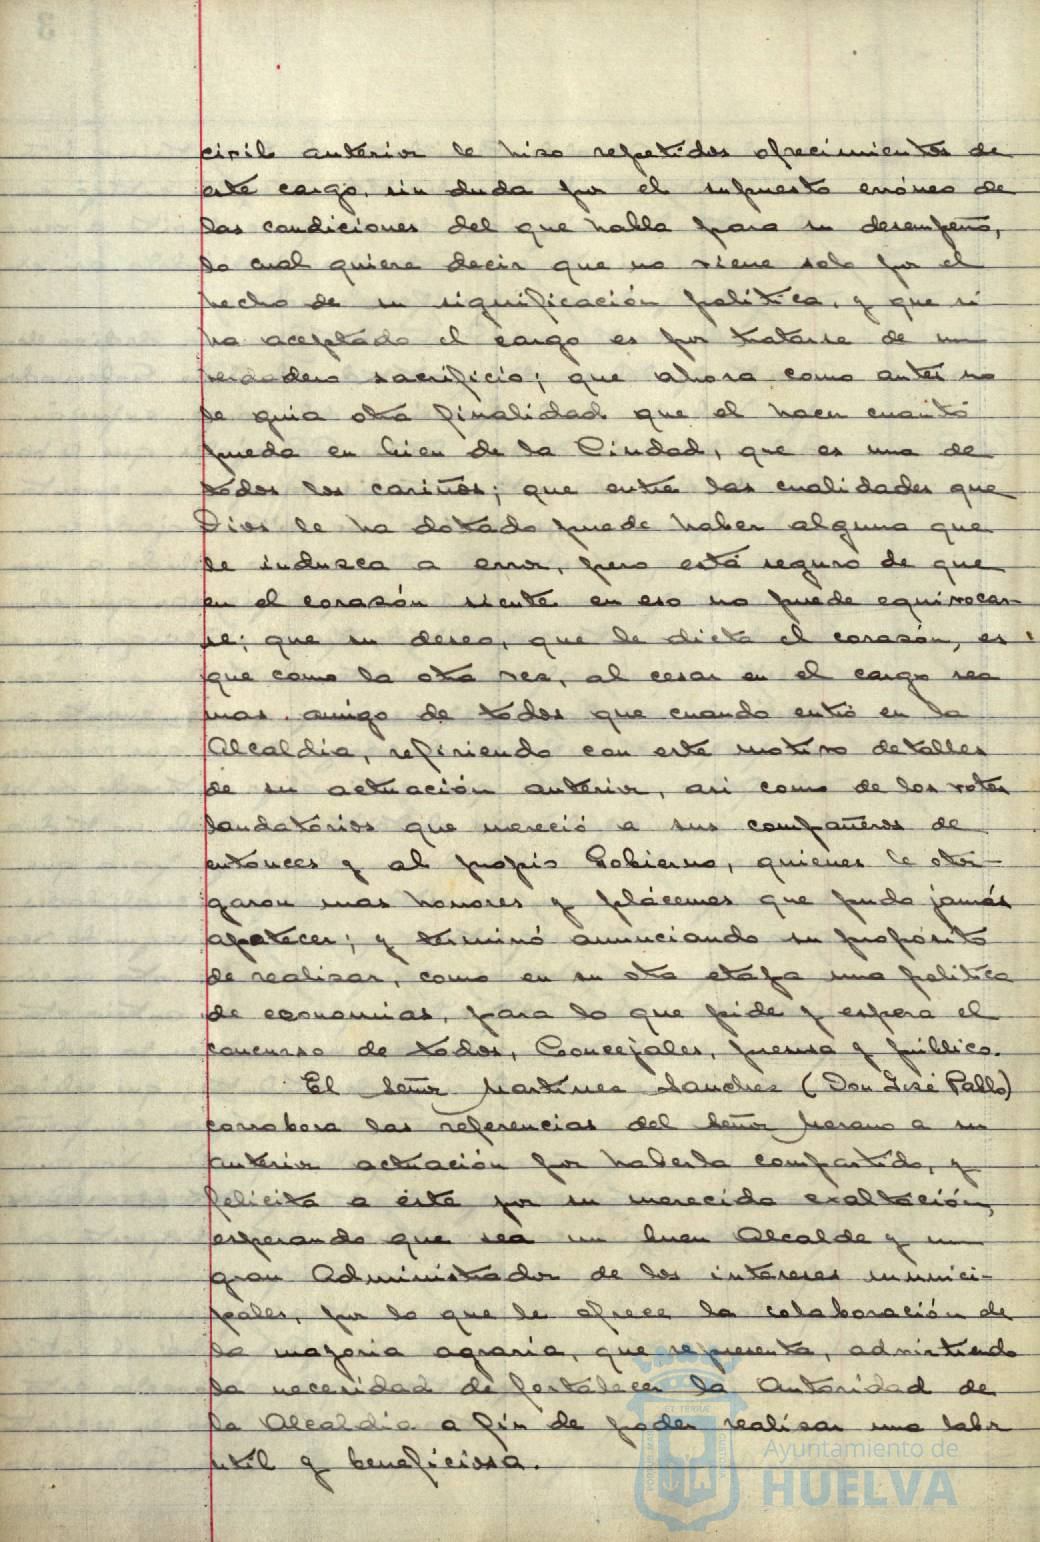 civil anterior le hizo repetidos ofrecimientos de
este cargo, sin duda por el supuesto erróneo de
las condiciones del que habla para su desempeño,
lo cual quiere decir que no viene solo por el
hecho de su significación política, y que si
ha aceptado el cargo es por tratarse de un
verdadero sacrificio; que ahora como antes no
le guia otra finalidad que el hacer cuanto
pueda en bien de la Ciudad, que es una de
todos los cariños; que entre las cualidades que
Dios le ha dotado puede haber alguna que
le induzca a error, pero está seguro de que
en el corazón siente en eso no puede equivocar-
se; que su deseo, que le dicta el corazón, es
que como la otra vez, al cesar en el cargo sea
mas amigo de todos que cuando entró en la
Alcaldia, refiriendo con este motivo detalles
de su actuación anterior, asi como de los votos
laudatorios que mereció a sus compañeros de
entonces y al propio Gobierno, quienes le otor-
garon mas honores y plácemes que pudo jamás
apetecer; y terminó anunciando su propósito
de realizar, como en su otra etapa una política
de economias, para lo que pide y espera el
concurso de todos, Concejales, prensa y público.
El Señor Martinez Sanchez (Don José Pablo)
corrobora las referencias del Señor Moreno a su
anterior actuación por haberla compartido, y
felicita a éste por su merecida exaltación,
esperando que sea un buen Alcalde y un
gran Administrador de los intereses munici-
pales, por lo que le ofrece la colaboración de
la mayoria agraria, que representa, advirtiendo
la necesidad de fortalecer la Autoridad de
la Alcaldía a fin de poder realizar una labor
util y beneficiosa.
Ayuntamiento de
HUELVA